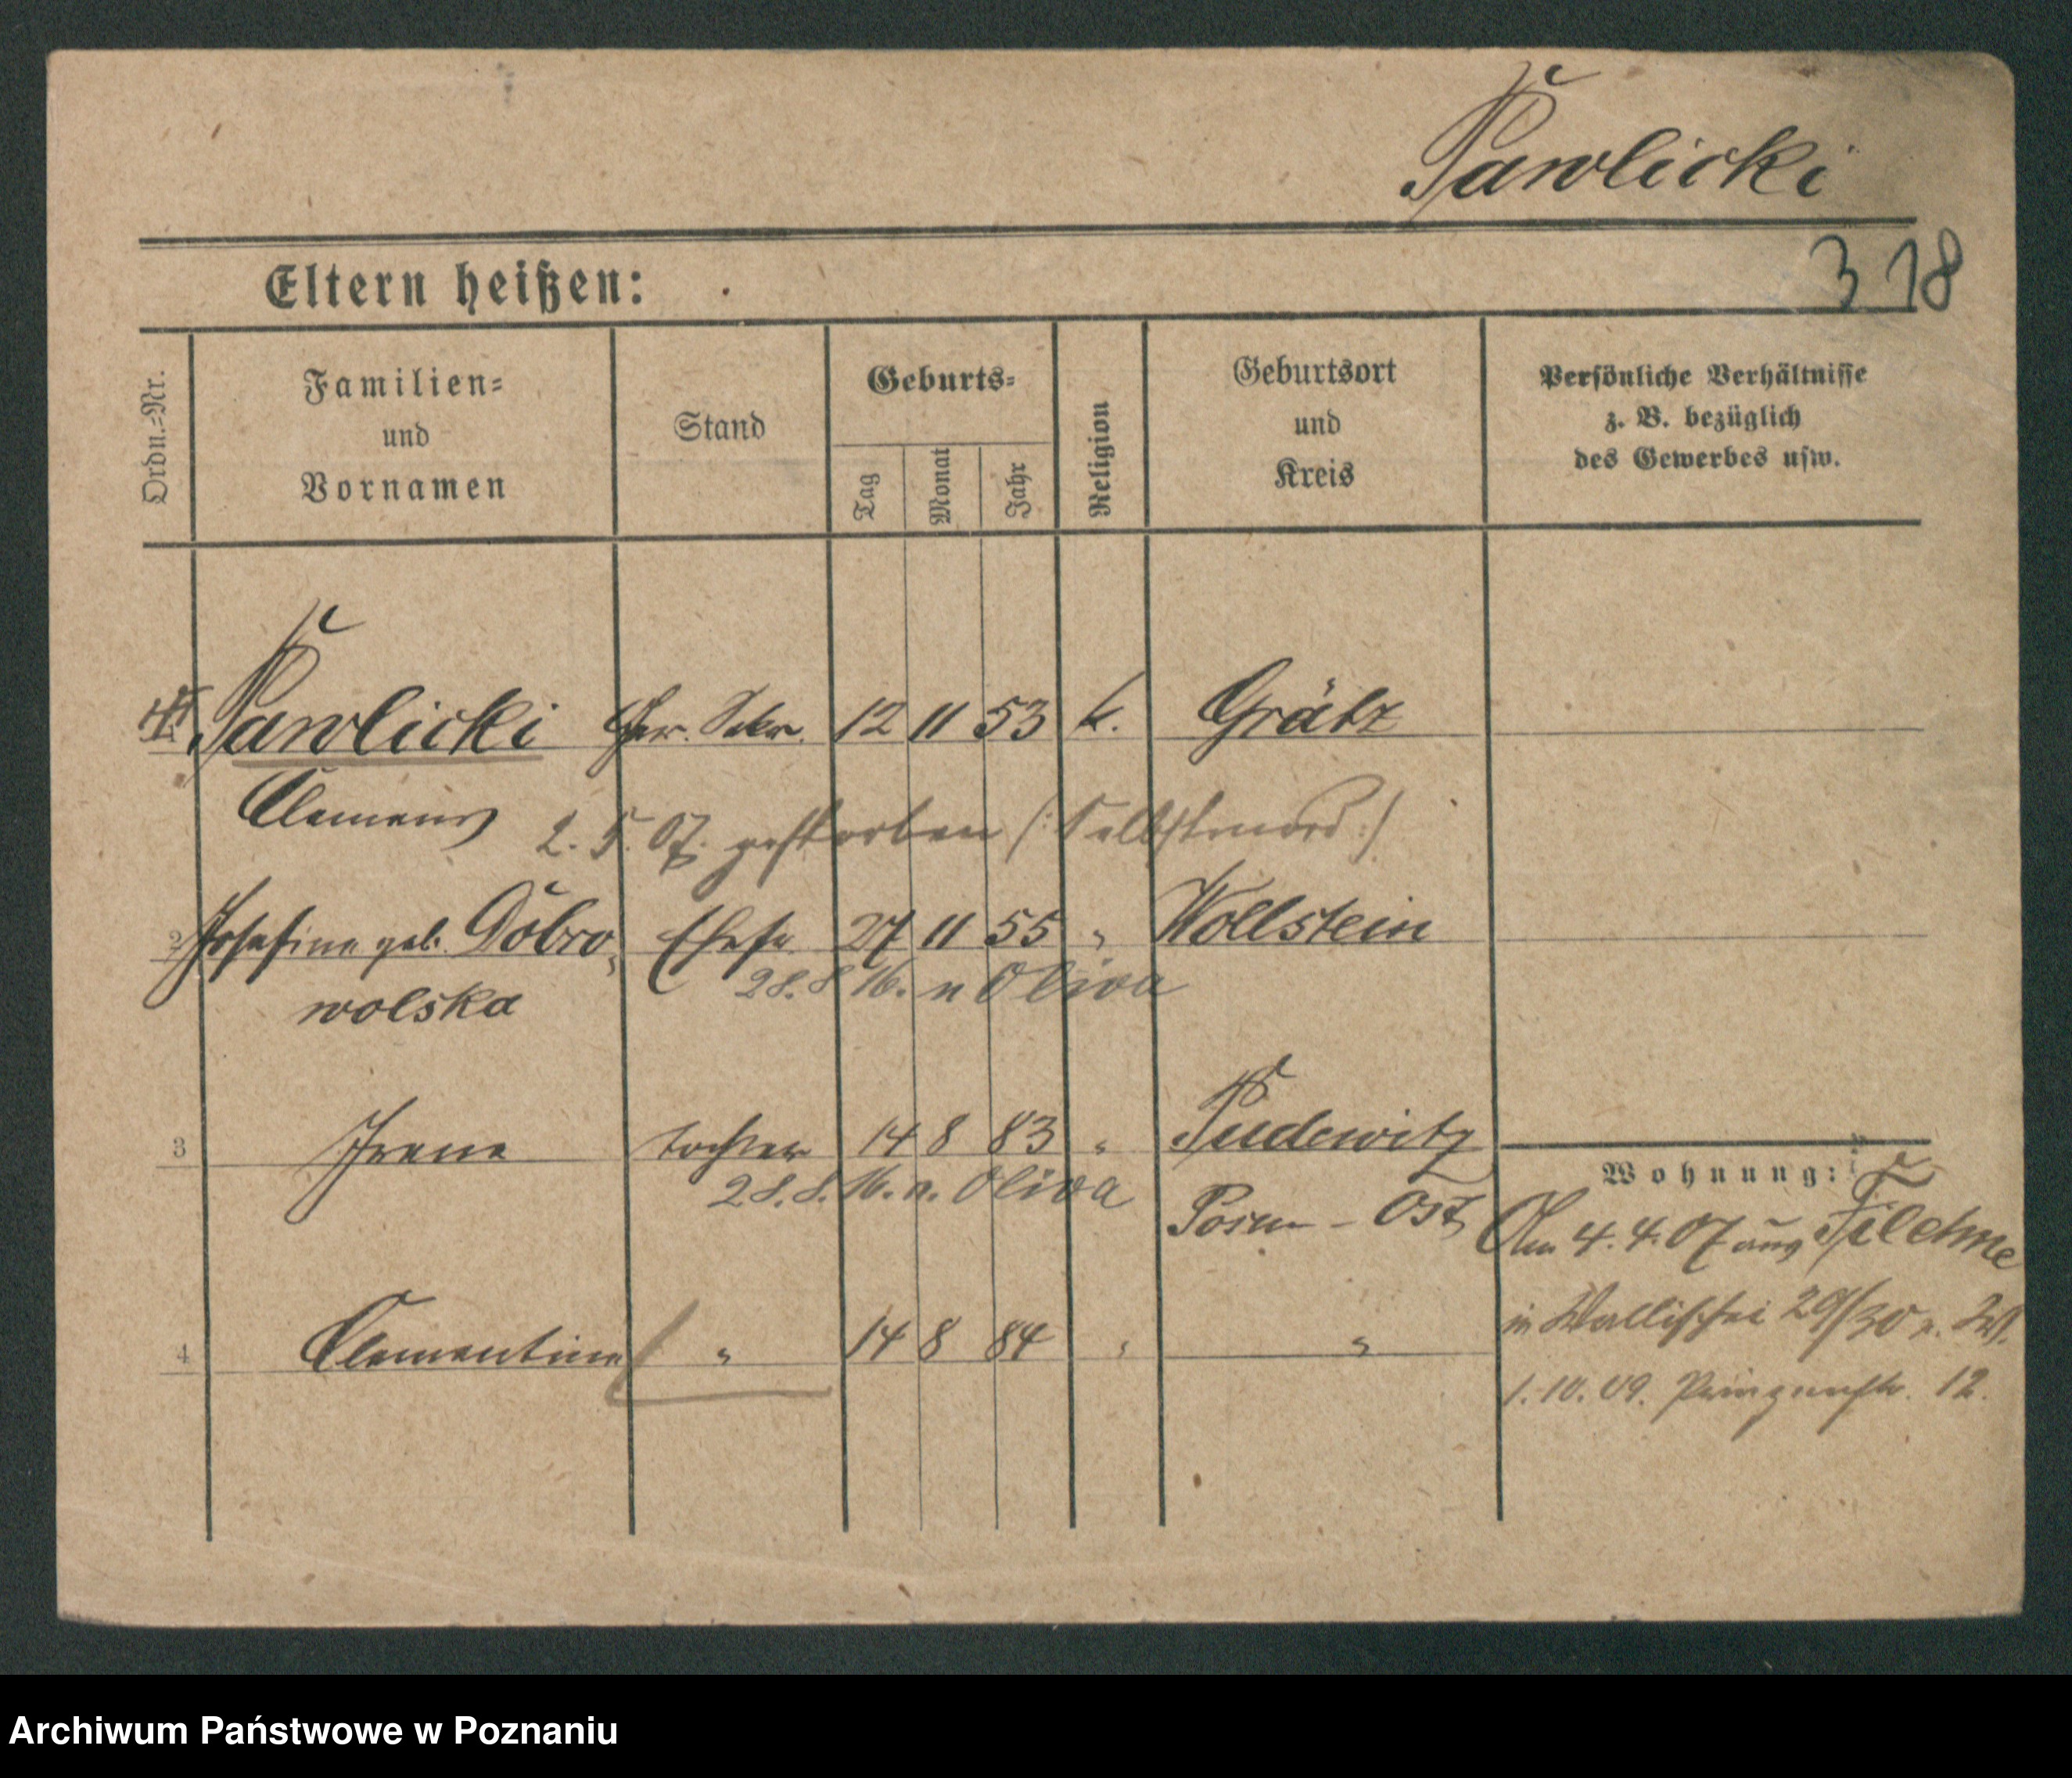 Pawlicki
318
Eltern heißen:
Ordn.-Nr.
Familien-
und
Vornamen
Stand
Geburts-
Tag
Monat
Jahr
Religion
Geburtsort
und
Kreis
Persönliche Verhältnisse
z. B. bezüglich
des Gewerbes usw.
Pawlicki Ger. Sekr. 12 11 53 k. Grätz
Clemens
2. 5. 07. gestorben (: Selbstmord :)
2 Josefine geb. Dobro- Ehefr. 27 11 55 " Wollstein
wolska
28. 8 16. n Oliva
3 Irene Tochter 14 8 83 " Pudewitz
28. 8. 16. n. Oliva
Posen - Ost
4 Clementine " 14 8 84 " "
Wohnung:
Am 4. 4. 07 aus Filehne
in Wallischei 29/30 v. W.
1. 10. 09. Prinzenstr. 12.
Archiwum Państwowe w Poznaniu